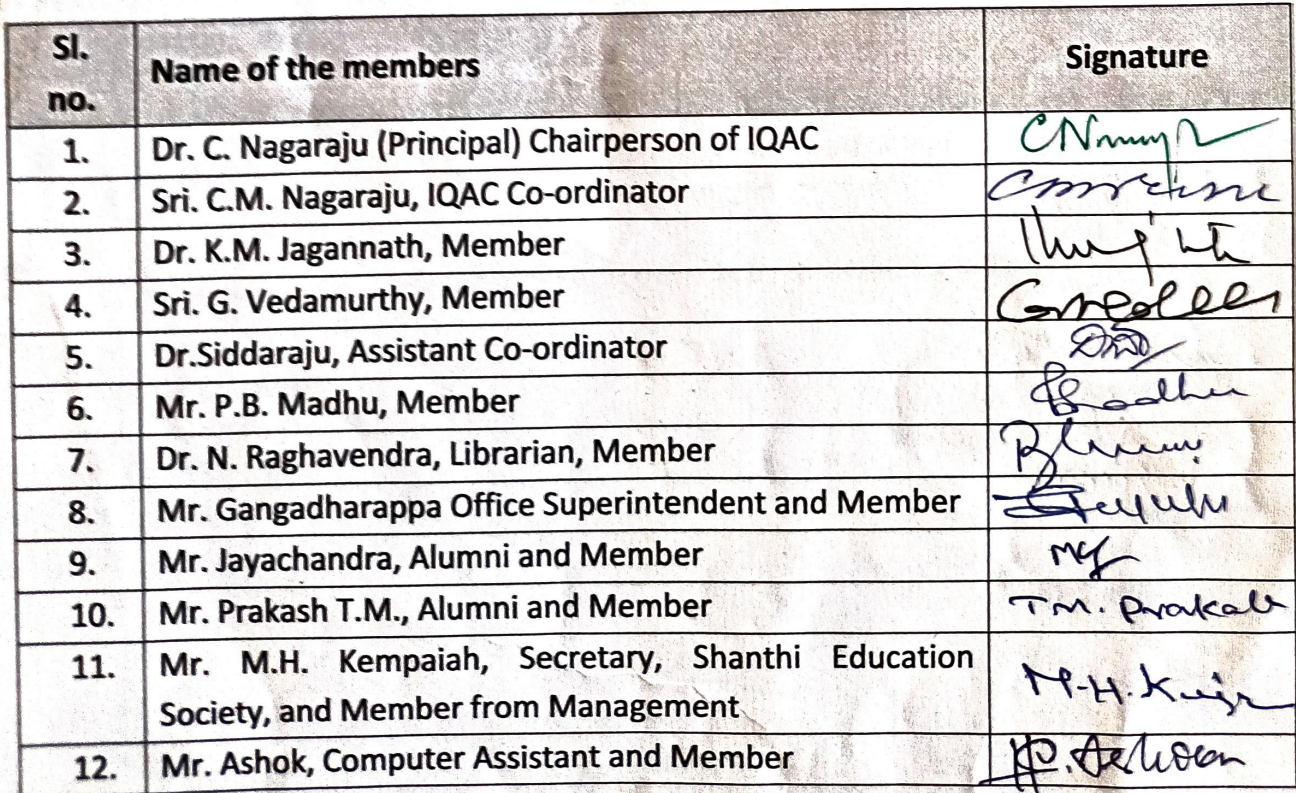 Sl. no. Name of the members Signature
1. Dr. C. Nagaraju (Principal) Chairperson of IQAC
2. Sri. C.M. Nagaraju, IQAC Co-ordinator
3. Dr. K.M. Jagannath, Member
4. Sri. G. Vedamurthy, Member
5. Dr.Siddaraju, Assistant Co-ordinator
6. Mr. P.B. Madhu, Member
7. Dr. N. Raghavendra, Librarian, Member
8. Mr. Gangadharappa Office Superintendent and Member
9. Mr. Jayachandra, Alumni and Member
10. Mr. Prakash T.M., Alumni and Member T.M. Prakash
11. Mr. M.H. Kempaiah, Secretary, Shanthi Education
Society, and Member from Management M.H.
12. Mr. Ashok, Computer Assistant and Member